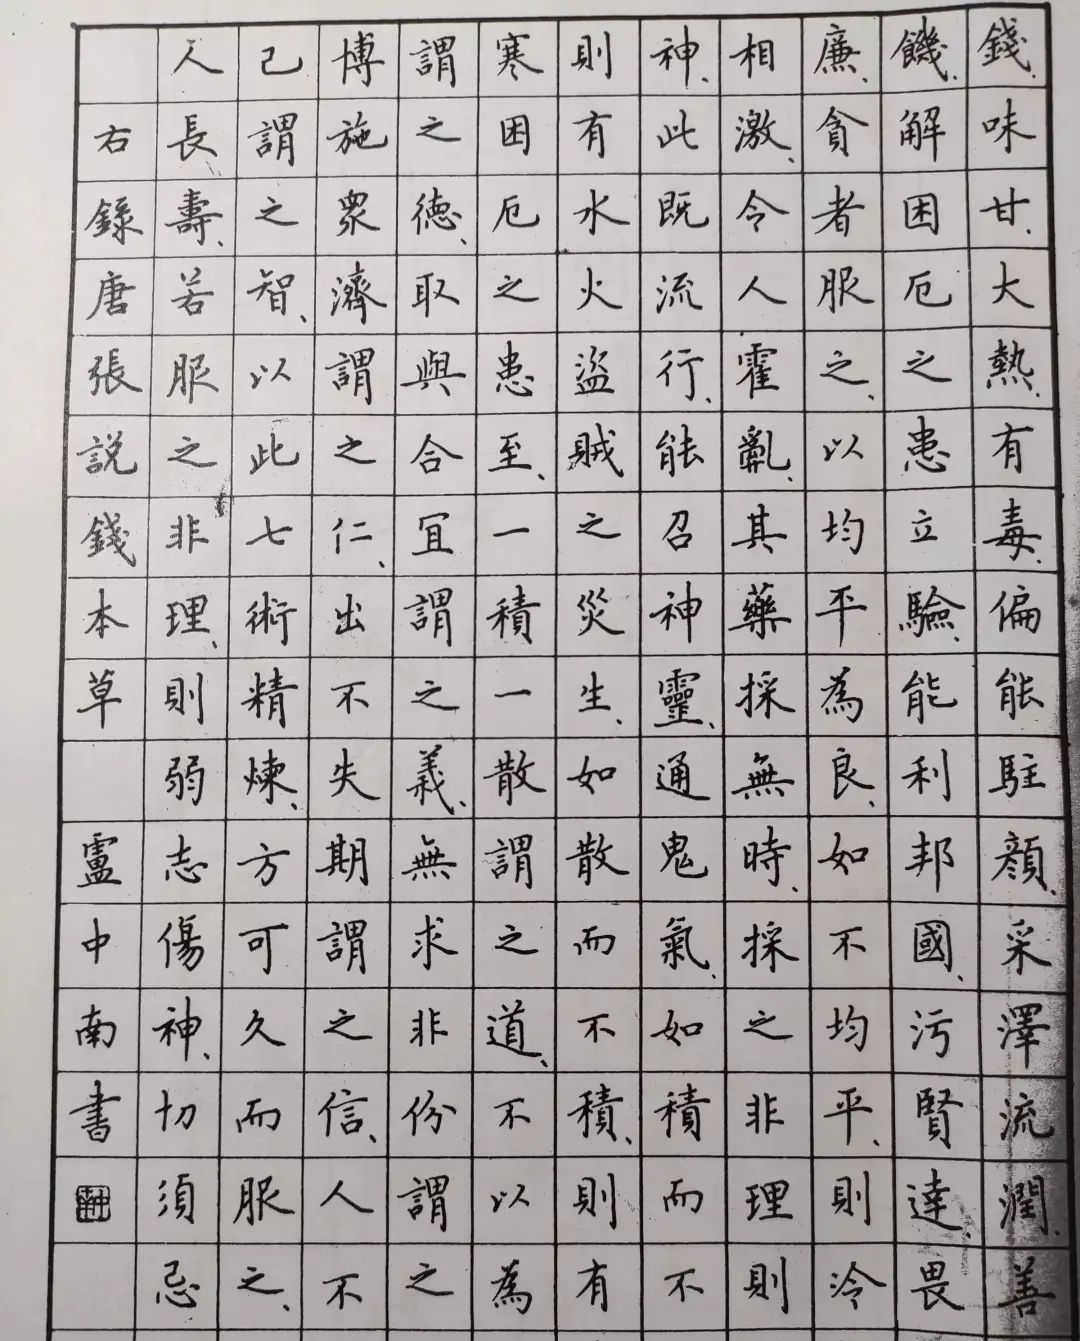 錢、味甘、大熱、有毒、偏能駐顏、采澤流潤、善
饑、解困厄之患立驗、能利邦國、污賢達、畏
廉、貪者服之、以均平為良、如不均平、則冷
相激、令人霍亂、其藥採無時、採之非理則
神、此既流行、能召神靈、通鬼氣、如積而不
則有水火盜賊之災生、如散而不積、則有
寒困厄之患至、一積一散謂之道、不以為
謂之德、取與合宜謂之義、無求非份謂之
博施眾濟謂之仁、出不失期謂之信、人不
己謂之智、以此七術精煉、方可久而服之、
人長壽、若服之非理、則弱志傷神、切須忌
右錄唐張說錢本草 盧中南書